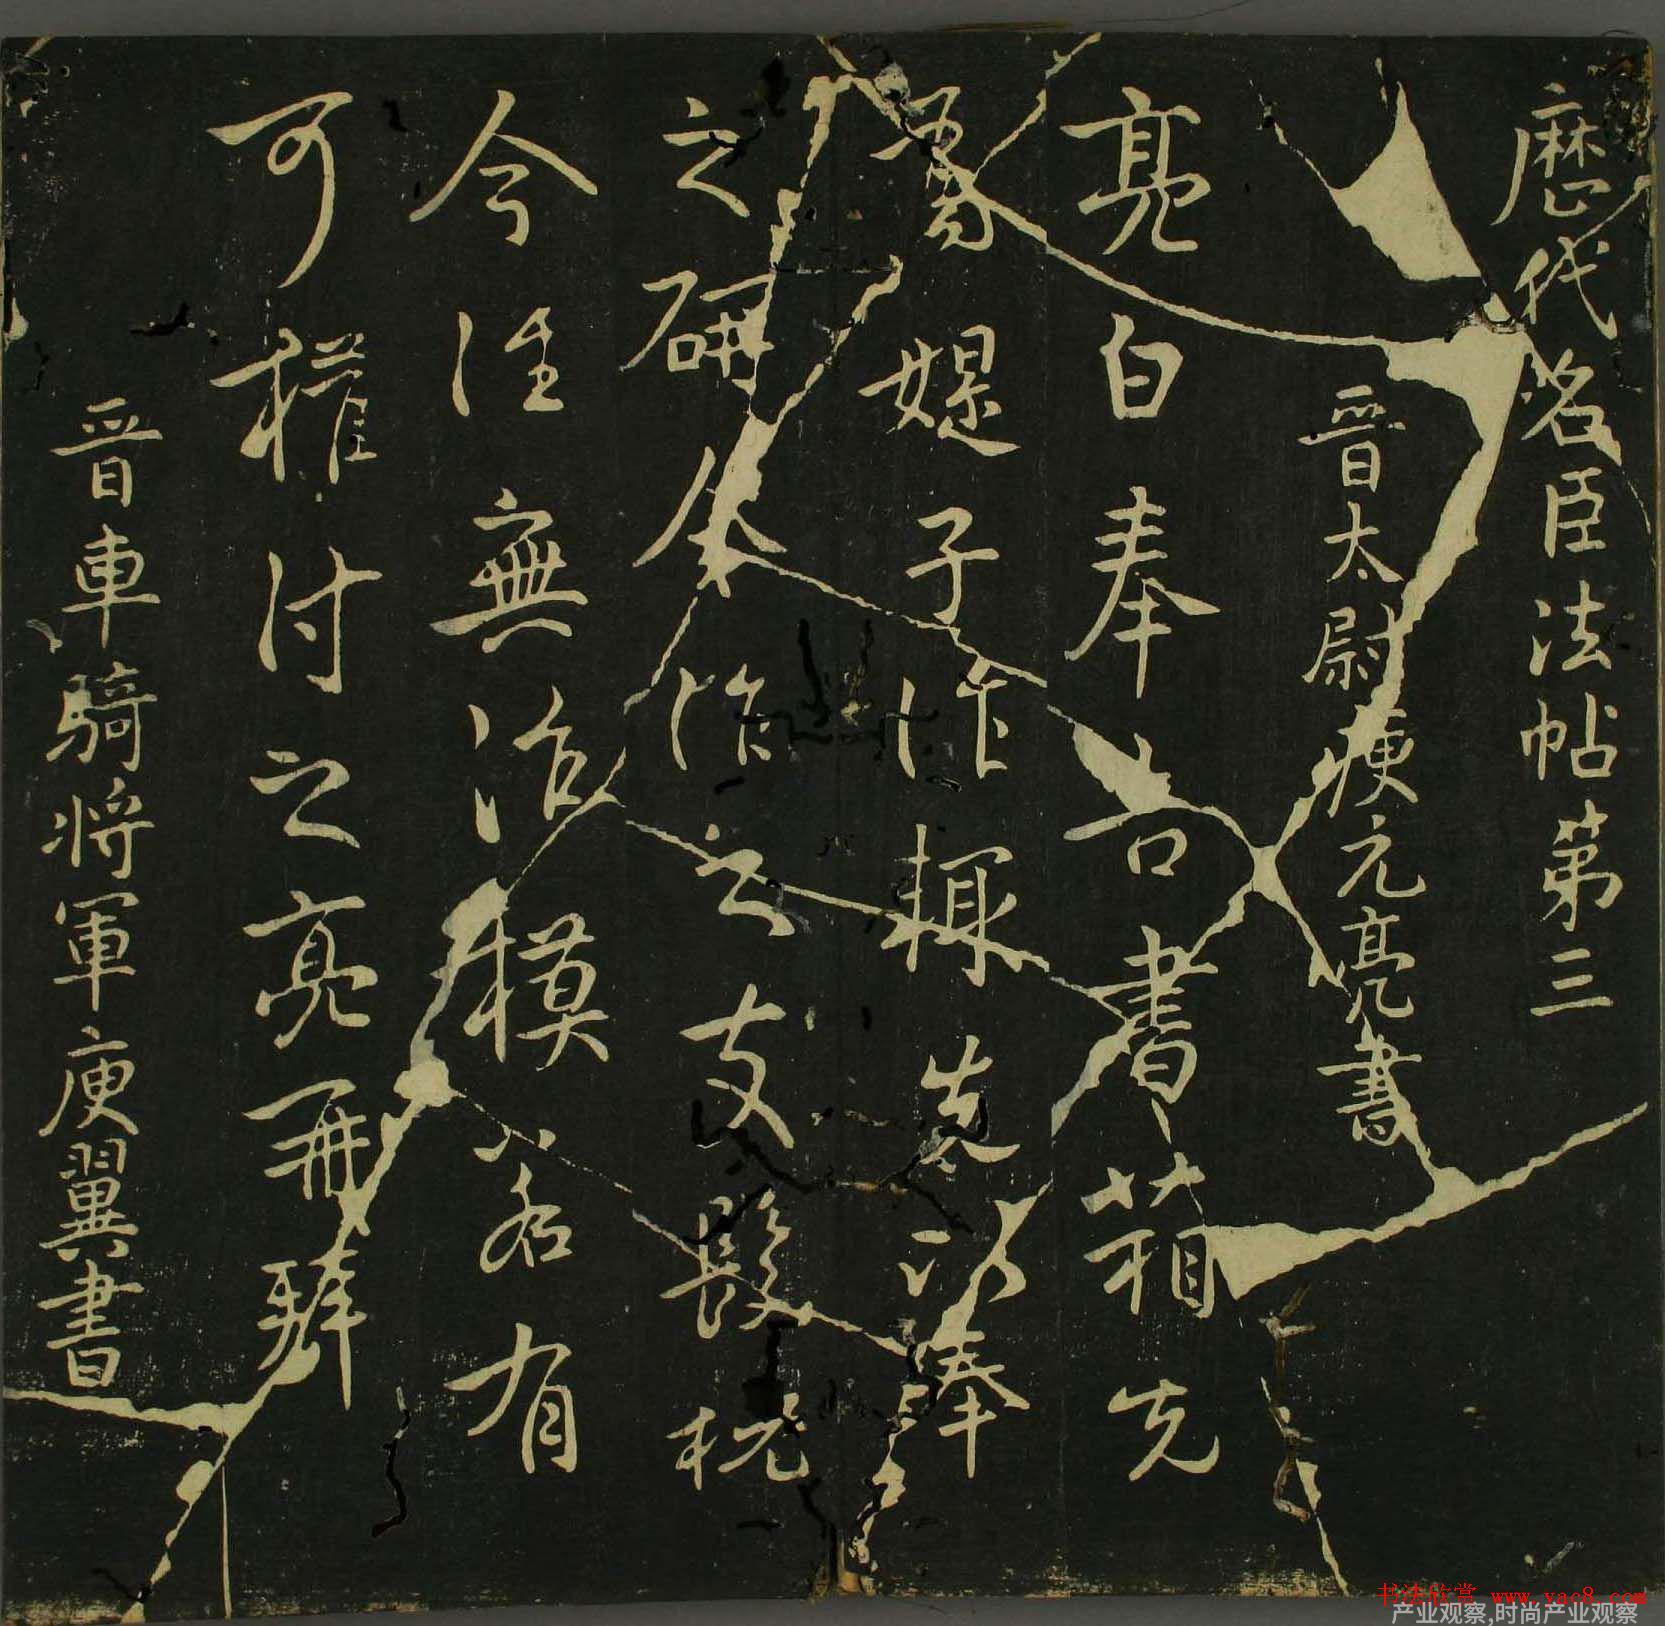 歷代名臣法帖第三
晉太尉庾元亮書
亮白奉告書箱先
媞子作輙先以奉
之研令作之支髮
今往無治模若有
可權付之亮再拜
晉車騎將軍庾翼書
书法欣赏 www.yac8.com
产业观察,时尚产业观察